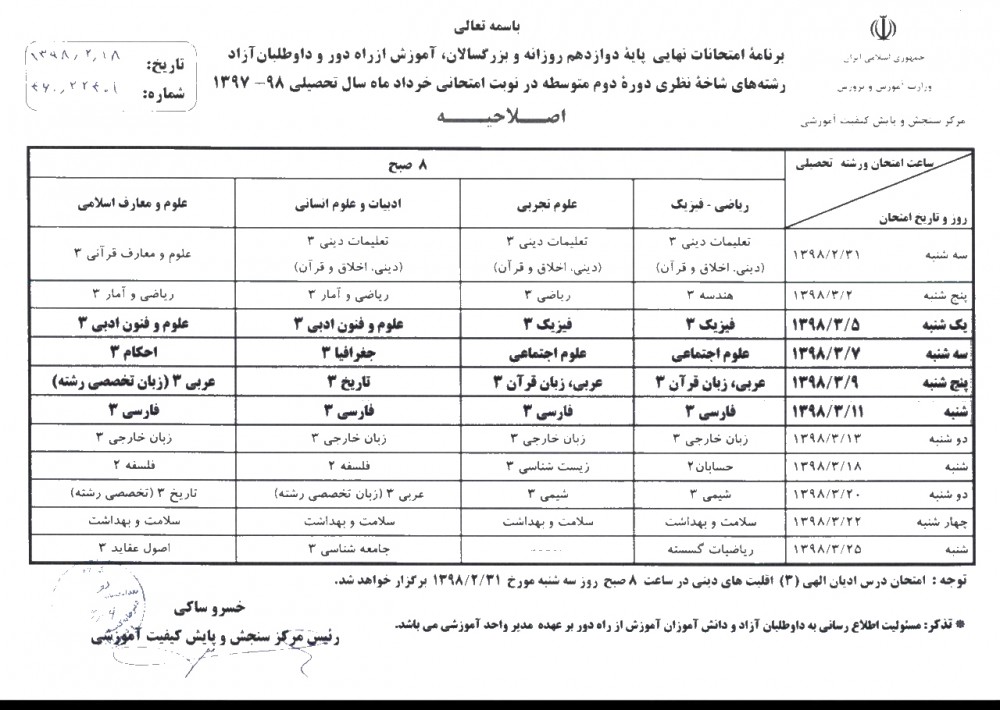 باسمه تعالی
جمهوری اسلامی ایران
وزارت آموزش و پرورش
مرکز سنجش و پایش کیفیت آموزشی
برنامهٔ امتحانات نهایی پایهٔ دوازدهم روزانه و بزرگسالان، آموزش از راه دور و داوطلبان آزاد
رشته‌های شاخهٔ نظری دورهٔ دوم متوسطه در نوبت امتحانی خرداد ماه سال تحصیلی ۹۸- ۱۳۹۷
اصـــلاحیـــه
تاریخ: ۱۳۹۸/۲/۱۸
شماره:
ساعت امتحان ورشته تحصیلی ۸ صبح
روز و تاریخ امتحان ریاضی - فیزیک علوم تجربی ادبیات و علوم انسانی علوم و معارف اسلامی
سه شنبه ۱۳۹۸/۲/۳۱ تعلیمات دینی ۳ تعلیمات دینی ۳ تعلیمات دینی ۳ علوم و معارف قرآنی ۳
(دینی، اخلاق و قرآن) (دینی، اخلاق و قرآن) (دینی، اخلاق و قرآن)
پنج شنبه ۱۳۹۸/۳/۲ هندسه ۳ ریاضی ۳ ریاضی و آمار ۳ ریاضی و آمار ۳
یک شنبه ۱۳۹۸/۳/۵ فیزیک ۳ فیزیک ۳ علوم و فنون ادبی ۳ علوم و فنون ادبی ۳
سه شنبه ۱۳۹۸/۳/۷ علوم اجتماعی علوم اجتماعی جغرافیا ۳ احکام ۳
پنج شنبه ۱۳۹۸/۳/۹ عربی، زبان قرآن ۳ عربی، زبان قرآن ۳ تاریخ ۳ عربی ۳ (زبان تخصصی رشته)
شنبه ۱۳۹۸/۳/۱۱ فارسی ۳ فارسی ۳ فارسی ۳ فارسی ۳
دو شنبه ۱۳۹۸/۳/۱۳ زبان خارجی ۳ زبان خارجی ۳ زبان خارجی ۳ زبان خارجی ۳
شنبه ۱۳۹۸/۳/۱۸ حسابان۲ زیست شناسی ۳ فلسفه ۲ فلسفه ۲
دو شنبه ۱۳۹۸/۳/۲۰ شیمی ۳ شیمی ۳ عربی ۳ (زبان تخصصی رشته) تاریخ ۳ (تخصصی رشته)
چهار شنبه ۱۳۹۸/۳/۲۲ سلامت و بهداشت سلامت و بهداشت سلامت و بهداشت سلامت و بهداشت
شنبه ۱۳۹۸/۳/۲۵ ریاضیات گسسته ----- جامعه شناسی ۳ اصول عقاید ۳
توجه : امتحان درس ادیان الهی (۳) اقلیت های دینی در ساعت ۸ صبح روز سه شنبه مورخ ۱۳۹۸/۲/۳۱ برگزار خواهد شد.
* تذکر: مسئولیت اطلاع رسانی به داوطلبان آزاد و دانش آموزان آموزش از راه دور بر عهده مدیر واحد آموزشی می باشد.
خسرو ساکی
رئیس مرکز سنجش و پایش کیفیت آموزشی